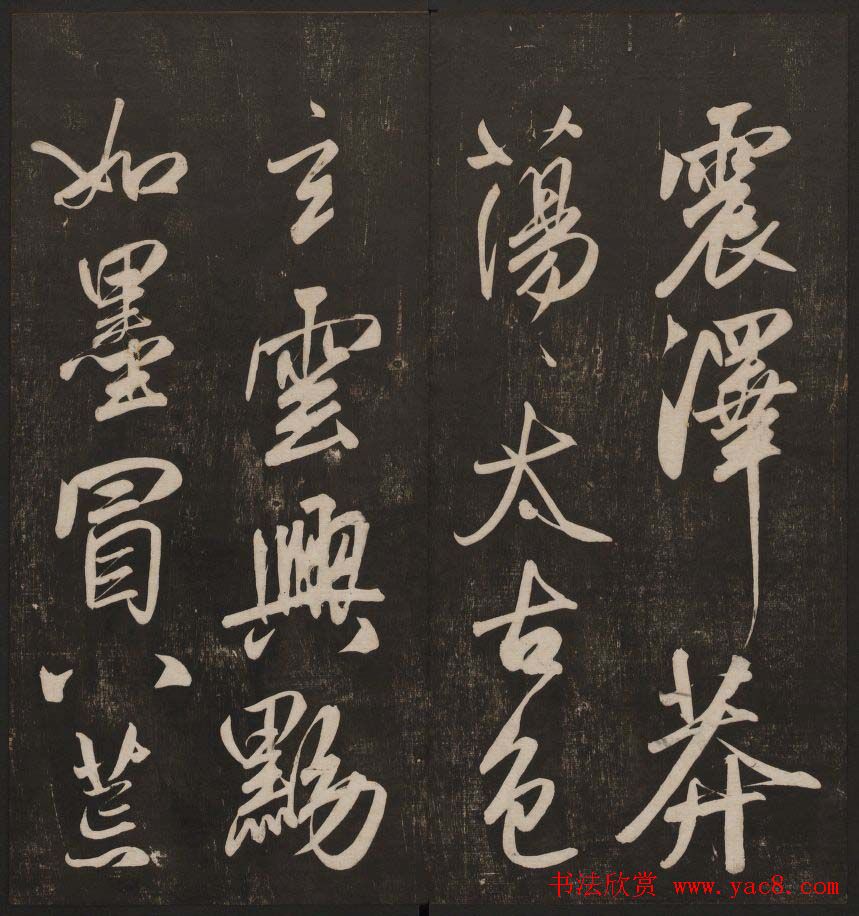 震澤莽
蕩、太古色
玄雲興黝
如墨冒八荒
书法欣赏 www.yac8.com